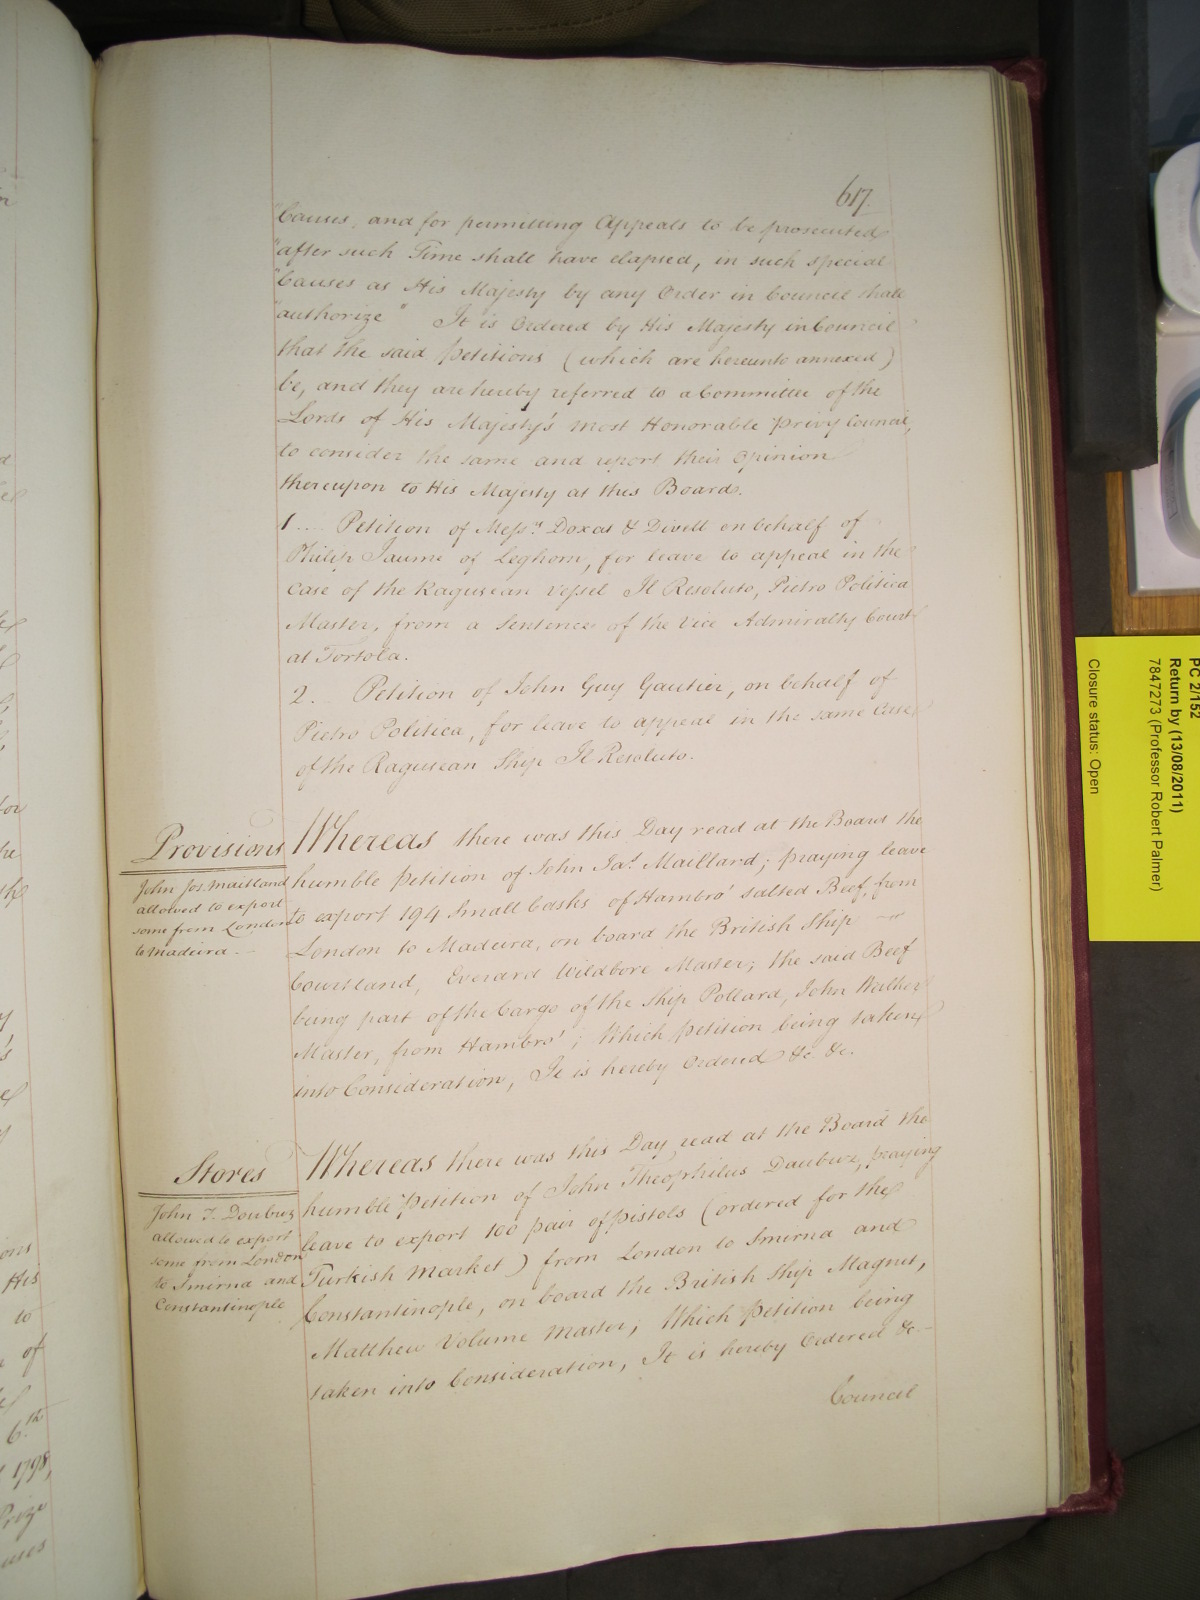 617.
"Causes, and for permitting Appeals to be prosecuted
"after such Time shall have elapsed, in such special
"Causes as His Majesty by any Order in Council shall
"authorize" It is Ordered by His Majesty in Council
that the said Petitions (which are hereunto annexed)
be, and they are hereby referred to a Committee of the
Lords of His Majesty's most Honorable Privy Council,
to consider the same and report their Opinion
thereupon to His Majesty at this Board.
1... Petition of Mess.rs Doxat & Divett on behalf of
Philip Jaume of Leghorn, for leave to appeal in the
Case of the Ragusean Vessel Il Resoluto, Pietro Politica
Master, from a Sentence of the Vice Admiralty Court
at Tortola.
2... Petition of John Guy Gautier, on behalf of
Pietro Politica, for leave to appeal in the same Case
of the Ragusean Ship Il Resoluto.
Provisions
John Jos. Maitland
allowed to export
some from London
to Madeira
Whereas there was this Day read at the Board the
humble Petition of John Ja.s Maillard; praying leave
to export 194 Small Casks of Hambro' salted Beef, from
London to Madeira, on board the British Ship
Courtland, Everard Wildbore Master; the said Beef
being part of the Cargo of the Ship Pollard, John Walker
Master, from Hambro'; Which Petition being taken
into Consideration, It is hereby Ordered &c &c.
Stores
John T. Doubuz
allowed to export
some from London
to Smirna and
Constantinople
Whereas there was this Day read at the Board the
humble Petition of John Theophilus Daubuz, praying
leave to export 100 pair of Pistols (ordered for the
Turkish Market) from London to Smirna and
Constantinople, on board the British Ship Magnet,
Matthew Volume Master; Which Petition being
taken into Consideration, It is hereby Ordered &c
Council
PC 2/152
Return by (13/08/2011)
7847273 (Professor Robert Palmer)
Closure status: Open
His
to
of
6.th
1798,
Prize